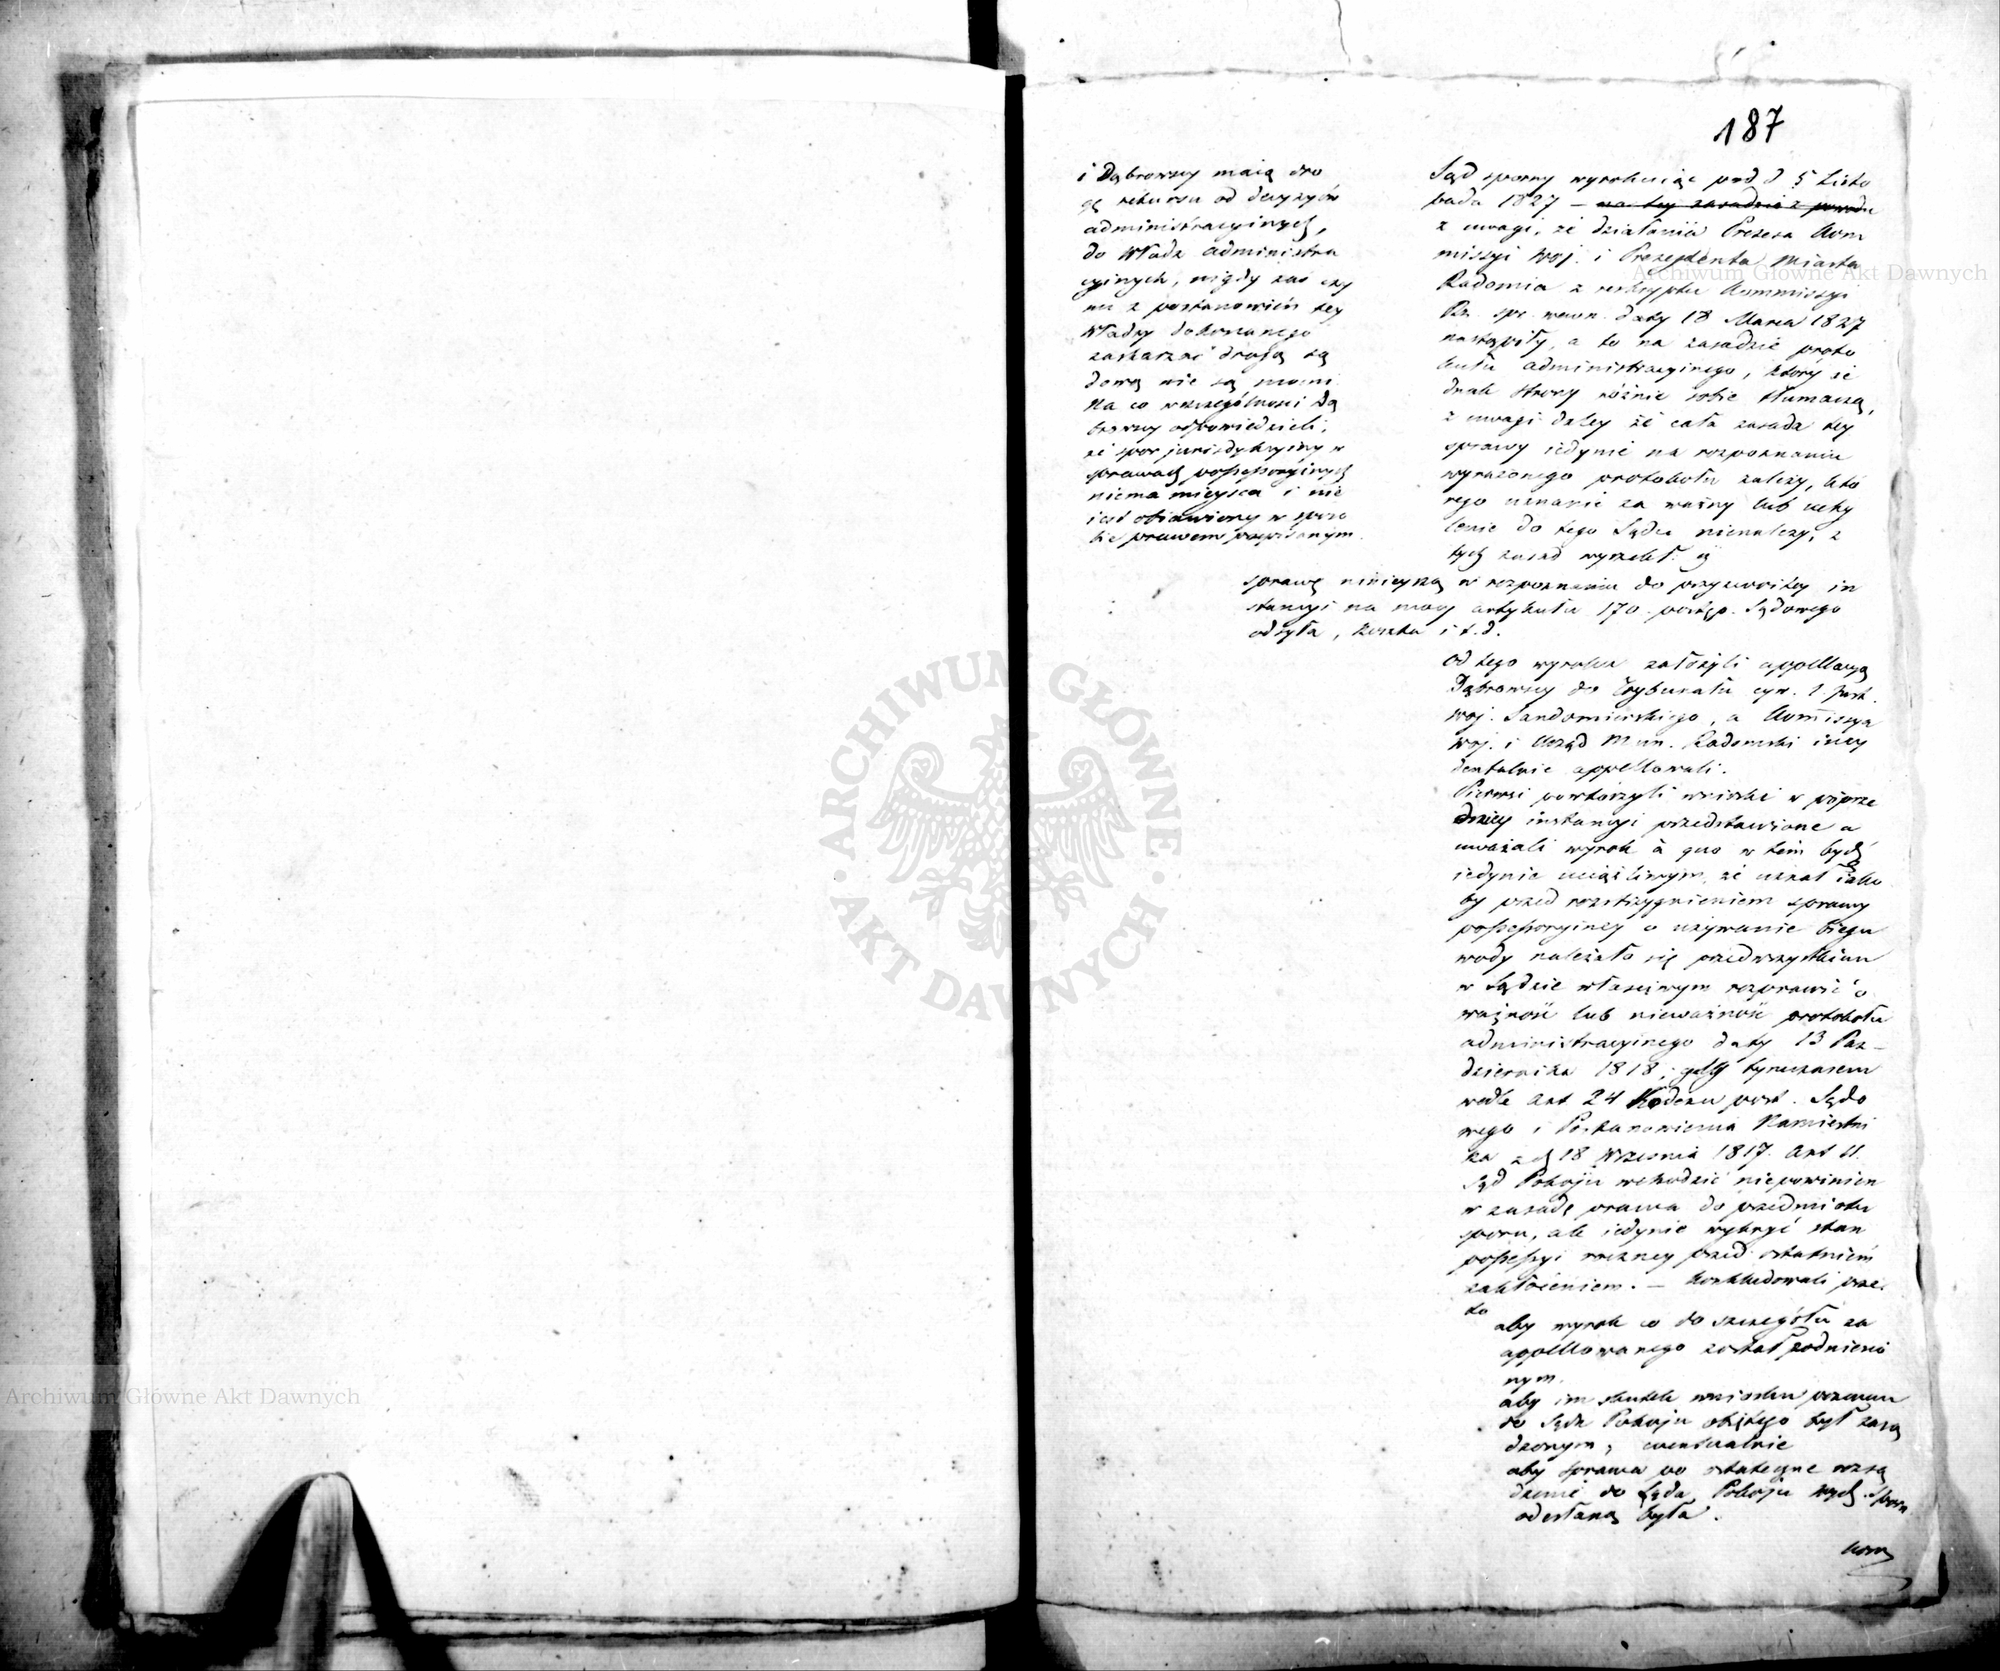 187
i Dąbrowscy maią dro
gę rekursu od decyzyów
administracyinych,
do Władz administra
cyinych, nigdy zaś czy
nu z postanowień tey
Władzy dokonanego
zaskarzać drogą są
dową nie są mocni.
Na co wszczególności Dą
browscy odpowiedzieli,
że spor jurisdykcyiny w
sprawach possessoryinych
niema mieysca i nie
iest obiawiony w sposo
bie prawem przepisanym.
Sąd sporny wyrokuiąc pod d 5 Listo
pada 1827 — na tey zasadzie z powodu
z uwagi, że działania Prezesa Kom
missyi Woj. i Prezydenta Miasta
Radomia z reskryptu Kommissyi
Rz. spr. wewn. daty 18 Marca 1827
nastąpiły, a to na zasadzie proto
kułu administracyinego, który ie
dnak strony różnie sobie tłumaczą,
z uwagi daley że cała zasada tey
sprawy iedynie na rozpoznaniu
wyrazonego protokołu zależy, któ
rego uznanie za ważny lub uchy
lenie do tego Sądu nienależy, z
tych zasad wyrzekł: iż
sprawę ninieyszą w rozpoznaniu do przyzwoitey in
stancyi na mocy artykułu 170. postęp. Sądowego
odsyła, koszta i t.d.
Od tego wyroku założyli appellacyą
Dąbrowscy do Trybunału cyw. 1. Inst.
woj. Sandomierskiego, a Kommissya
Woj. i Urząd Mun. Radomski incy
dentalnie appellowali.
Pierwsi powtórzyli wnioski w poprze
dniey instancyi przedstawione a
uważali wyrok à quo w tém bydź
iedynie uciążliwym, że uznał iako
by przed rozstrzygnieniem sprawy
possessoryiney o używanie biegu
wody należało się przedwszystkiem
w Sądzie właściwym rozprawić o
ważność lub nieważność protokołu
administracyinego daty 13 Paź-
dziernika 1818, gdy tymczasem
wedle art 24 Kodexu post. Sądo
wego i Postanowienia Namiestni
ka z d 18 Września 1817. art 11.
Sąd Pokoju wchodzić niepowinien
w zasadę prawa do przedmiotu
sporu, ale iedynie wykryć stan
possessyi roczney przed ostatniém
zakłóceniem. — Konkludowali prze
to
aby wyrok co do szczegółu za
appellowanego został podniesio
nym.
aby im skutek wniosku pozwem
do Sądu Pokoju obiętego był zasą
dzonym, ewentualnie
aby sprawa po ostateczne rozsą
dzenie do Sądu Pokoju Wydz. Sporn.
odesłaną była.
Kom
Archiwum Główne Akt Dawnych
ARCHIWUM GŁÓWNE
AKT DAWNYCH
Archiwum Główne Akt Dawnych